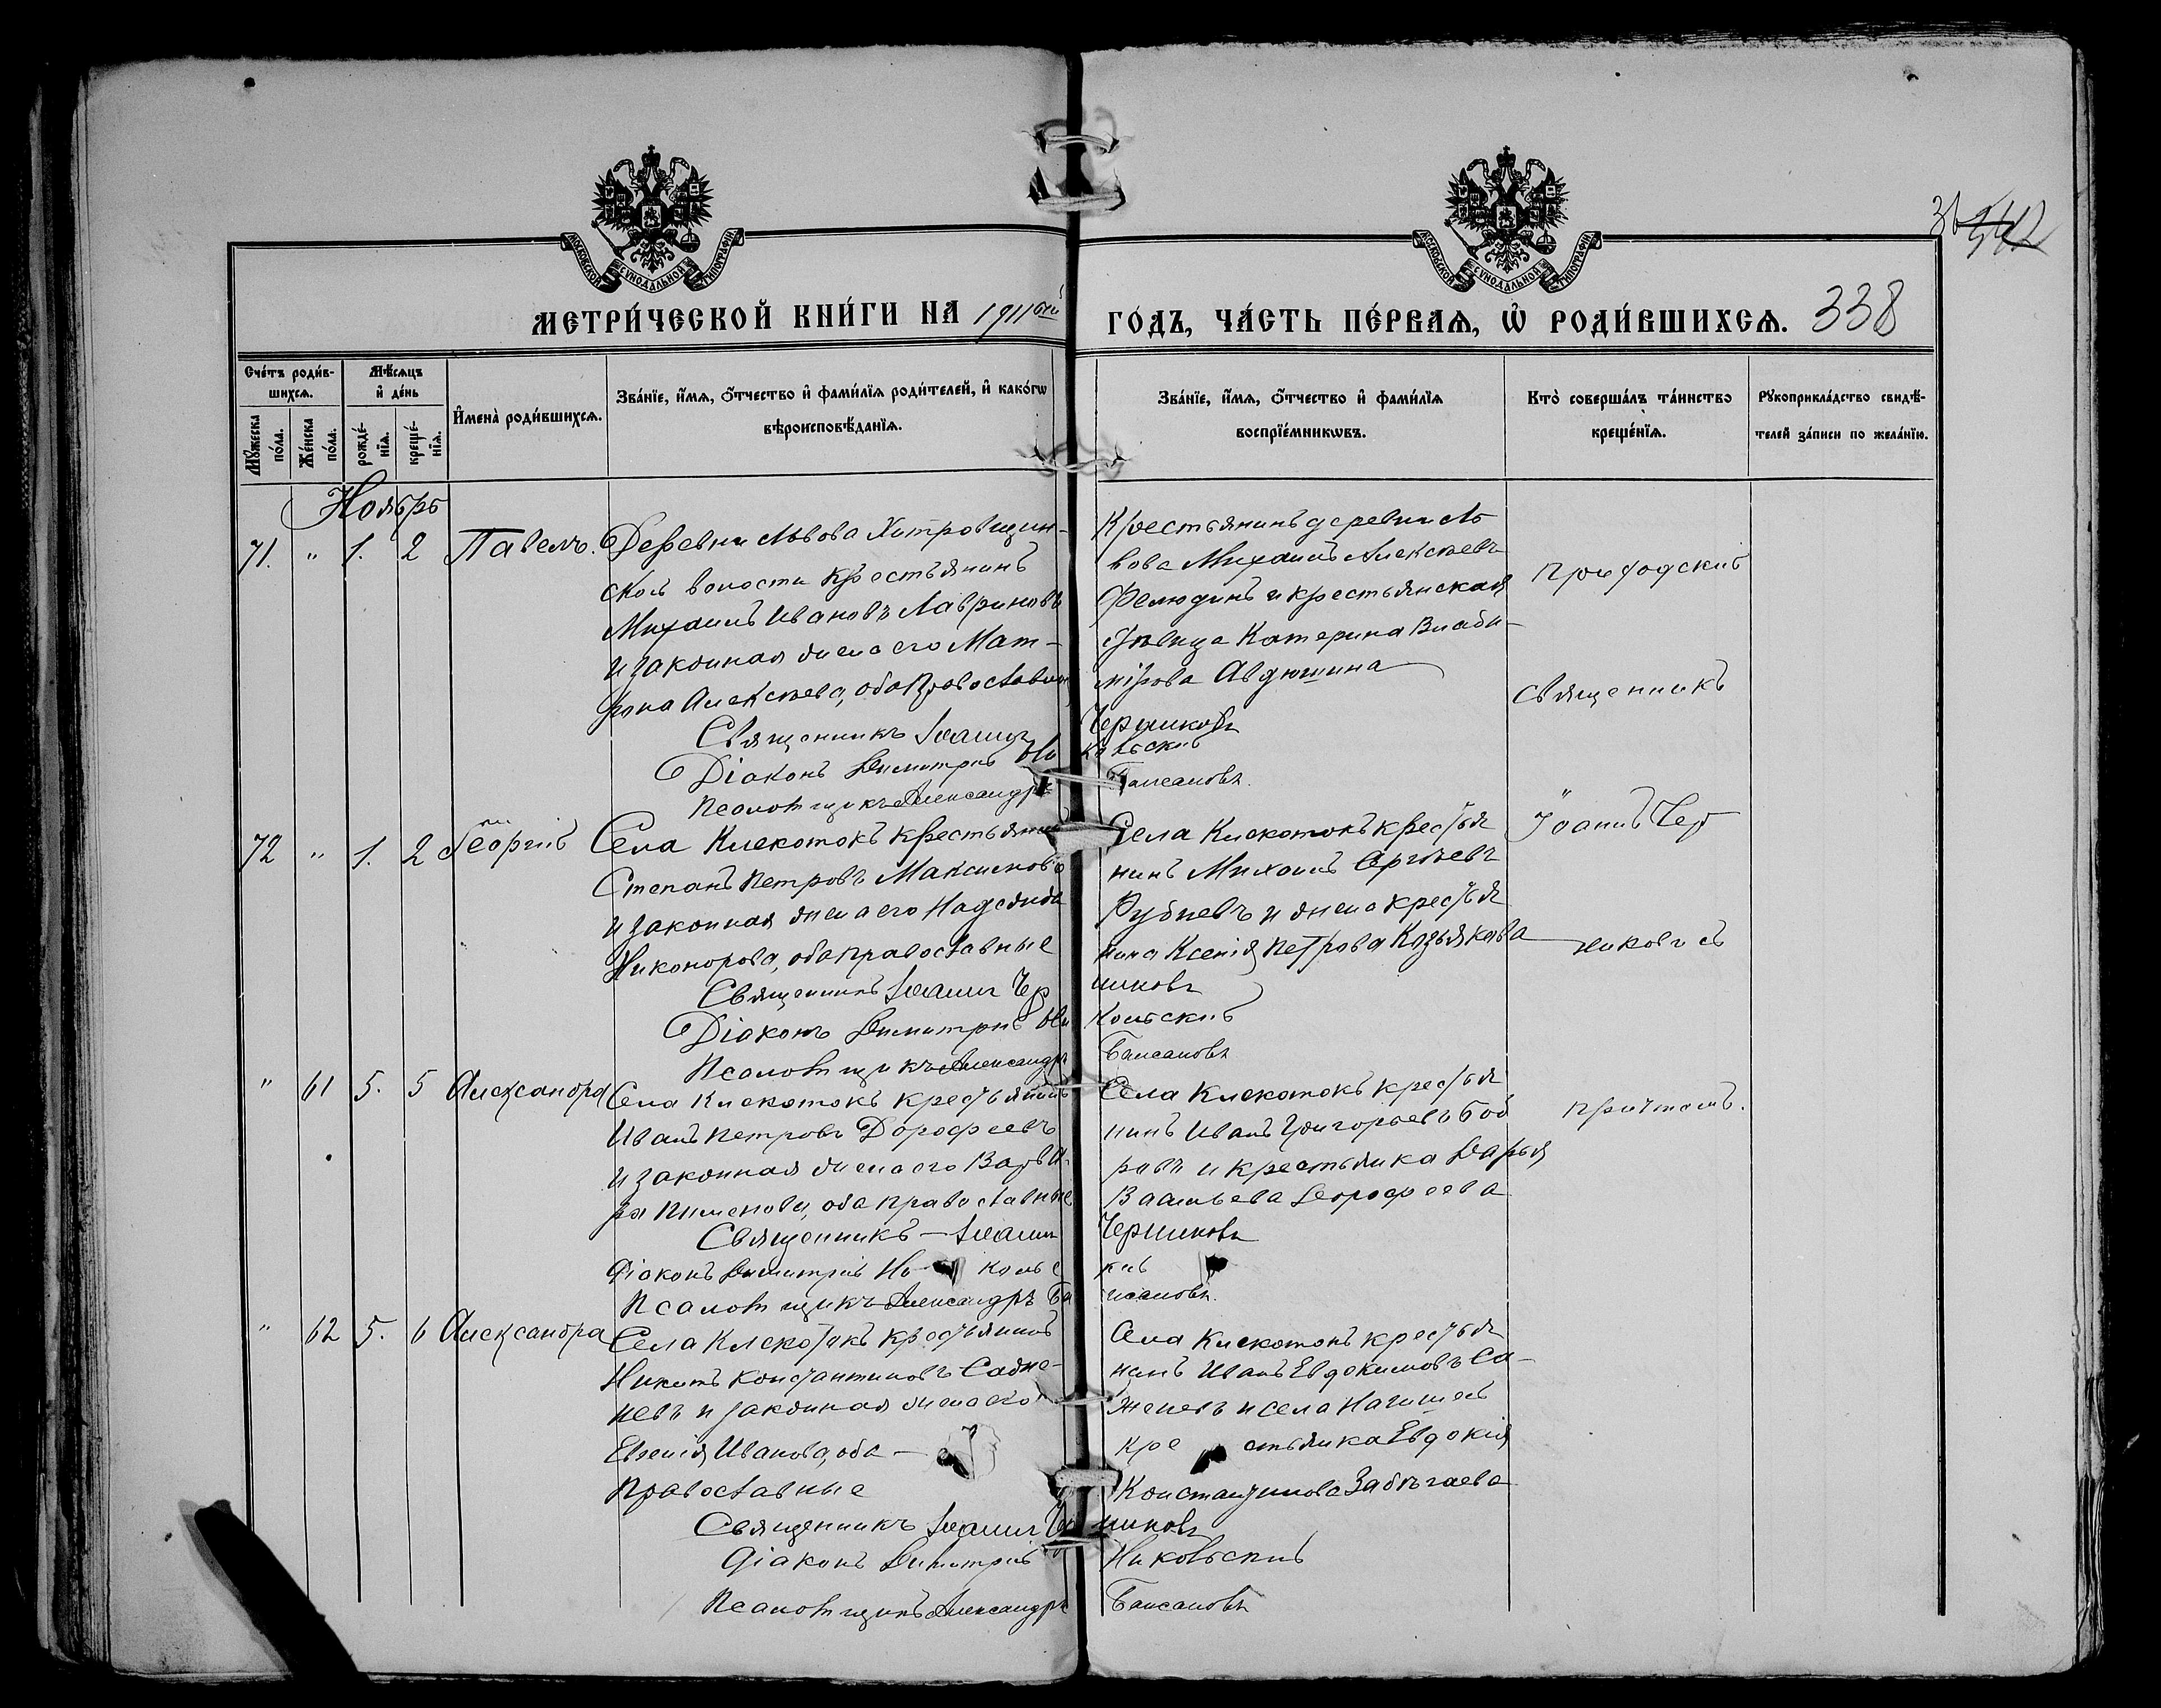 МОСКОВСКОЙ СѴНОДАЛЬНОЙ ТИПОГРАФІИ
МОСКОВСКОЙ СѴНОДАЛЬНОЙ ТИПОГРАФІИ
МЕТРИ́ЧЕСКОЙ КНИ́ГИ НА 1911ый ГО́ДЪ, ЧА́СТЬ ПЕ́РВАѦ, Ѡ҆ РОДИ́ВШИХСѦ. 338
Сче́тъ роди́в-
шихсѧ.
Мꙋ́жеска по́ла.
Же́нска по́ла.
Мѣ́сѧцъ и҆ де́нь
рожде́-нїѧ.
креще́-нїѧ.
И҆мена̀ роди́вшихсѧ.
Зва́нїе, и҆́мѧ, ѻ҆́тчество и҆ фами́лїѧ роди́телей, и҆ како́гѡ
вѣроисповѣ́данїѧ.
Зва́нїе, и҆́мѧ, ѻ҆́тчество и҆ фами́лїѧ
воспрїе́мникѡвъ.
Кто̀ соверша́лъ та́инство
креще́нїѧ.
Рꙋкоприкла́дство свидѣ́-
телей за́писи по жела́нїю.
Ноябрь
71. " 1. 2 Павелъ.
Деревни Львова Хитровщин-
ской волости крестьянинъ
Михаилъ Ивановъ Лавриновъ
и законная жена его Мат-
рона Алексѣева, оба Православные
Священникъ Іоаннъ Черниковъ
Діаконъ Димитрій Никольскій
Псаломщикъ Александръ
Крестьянинъ деревни Ль
вова Михаилъ Алексѣевъ
Фелюдинъ и крестьянская
дѣвица Катерина Влади-
мірова Авдюшина
Приходскій
Священникъ
Іоаннъ Чер
никовъ съ
причтомъ.
72 " 1. 2 Георгій
Села Клекотокъ крестьянинъ
Степанъ Петровъ Максимовъ
и законная жена его Надежда
Никонорова, оба православные
Священникъ Іоаннъ Черниковъ
Діаконъ Димитрій Никольскій
Псаломщикъ Александръ
Села Клекотокъ крестья
нинъ Михаилъ Сергѣевъ
Рубцевъ и жена крестья
нина Ксенія Петрова Козьякова
" 61 5. 5 Александра
Села Клекотокъ крестьянинъ
Иванъ Петровъ Дорофеевъ
и законная жена его Варва-
ра Пименова, оба православные
Священникъ — Іоаннъ Черниковъ
Діаконъ Димитрій Никольскій
Псаломщикъ Александръ
Села Клекотокъ крестья
нинъ Иванъ Григорьевъ
и крестьянка Дарья
Васильева Дорофеева
" 62 5. 6 Александра
Села Клекотокъ крестьянинъ
Никита Константиновъ Саже-
невъ и законная жена его
Евгенія Иванова, оба —
Православные
Священникъ Іоаннъ Черниковъ
Діаконъ Димитрій Никольскій
Псаломщикъ Александръ
Села Клекотокъ крестья
нинъ Иванъ Евдокимовъ Са-
женевъ и села
крестьянка Евдокія
Константинова Забѣгаева